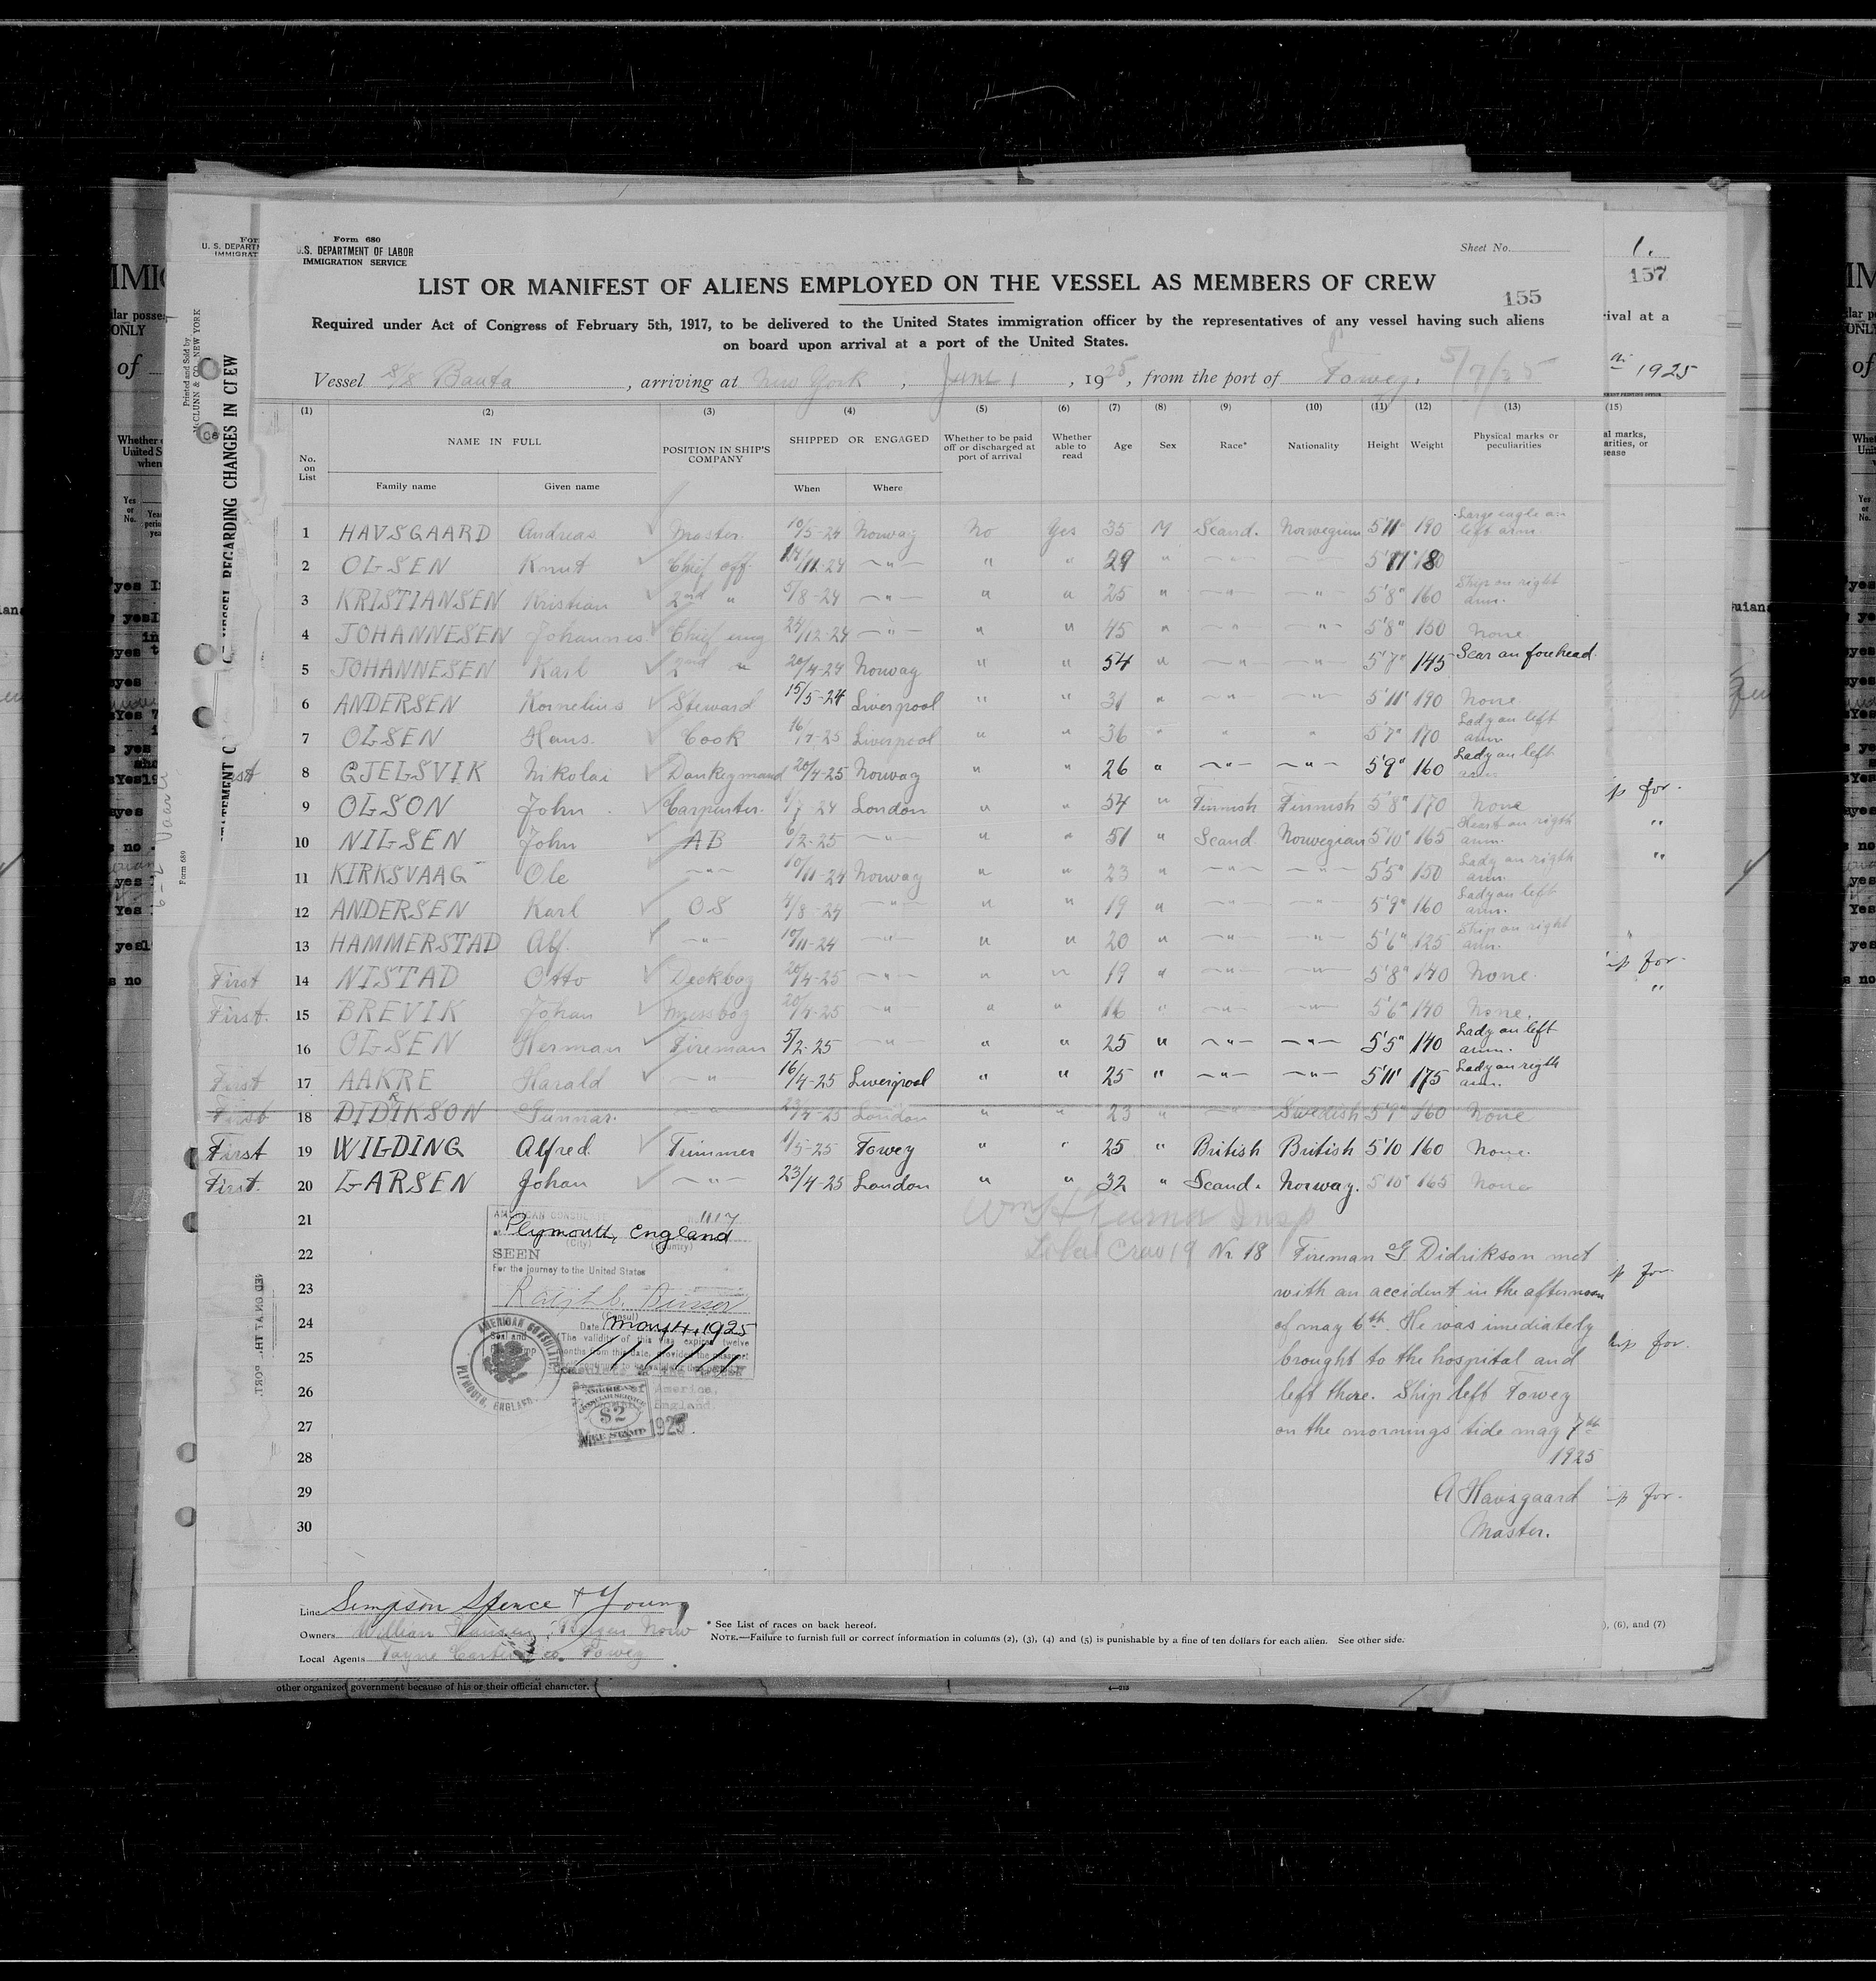 Form 680
U.S. DEPARTMENT OF LABOR
IMMIGRATION SERVICE
Sheet No.
LIST OR MANIFEST OF ALIENS EMPLOYED ON THE VESSEL AS MEMBERS OF CREW
155
Required under Act of Congress of February 5th, 1917, to be delivered to the United States immigration officer by the representatives of any vessel having such aliens
on board upon arrival at a port of the United States.
Vessel S/S Bauta, arriving at New York, June 1, 1925, from the port of Fowey,
(1) (2) (3) (4) (5) (6) (7) (8) (9) (10) (11) (12) (13)
No. on List NAME IN FULL Family name Given name POSITION IN SHIP'S COMPANY SHIPPED OR ENGAGED When Where Whether to be paid off or discharged at port of arrival Whether able to read Age Sex Race* Nationality Height Weight Physical marks or peculiarities
1 HAVSGAARD Andreas Master. 10/5-24 Norway No Yes 35 M Scand. Norwegian 5'11" 190 Large eagle on left arm.
2 OLSEN Knut Chief off. —"— " " 29 " —"— —"—
3 KRISTIANSEN Kristian 2nd " 5/8-24 —"— " " 25 " —"— —"— 5'8" 160 Ship on right arm.
4 JOHANNESEN Johannes Chief eng 24/12-24 —"— " " 45 " —"— —"— 5'8" 150 None
5 JOHANNESEN Karl 2nd " 20/4-24 Norway " " 54 " —"— —"— 5'7" 145 Scar on forehead.
6 ANDERSEN Kornelius Steward 15/5-24 Liverpool " " 31 " —"— —"— 5'11" 190 None
7 OLSEN Hans. Cook Liverpool " " 36 " " " 5'7" 170 Lady on left arm.
8 GJELSVIK Nikolai Donkeymand 20/4-25 Norway " " 26 " —"— —"— 5'9" 160 Lady on left arm
First
9 OLSON John Carpenter. London " " 54 " Finnish Finnish 5'8" 170 None
10 NILSEN John AB 6/2-25 —"— " " 51 " Scand. Norwegian 5'10" 165 Heart on rigth arm.
11 KIRKSVAAG Ole —"— 10/11-24 Norway " " 23 " —"— —"— 5'5" 150 Lady on rigth arm.
12 ANDERSEN Karl O.S —"— " " 19 " —"— —"— 5'9" 160 Lady on left arm.
13 HAMMERSTAD Alf. —"— 10/11-24 —"— " " 20 " —"— —"— 5'6" 125 Ship on right arm.
First 14 NISTAD Otto Deckboy 20/4-25 —"— " " 19 " —"— —"— 5'8" 140 None.
First. 15 BREVIK Johan Messboy 20/4-25 —"— " " 16 " —"— —"— 5'6" 140 None.
16 OLSEN Herman Fireman 5/2-25 —"— " " 25 " —"— —"— 5'5" 140 Lady on left arm.
First 17 AAKRE Harald —"— 16/4-25 Liverpool " " 25 " —"— —"— 5'11" 175 Lady on rigth arm.
First 18 DIDRIKSON Gunnar. —"— 23/4-25 London " " 23 " —"— Swedish 5'9" 160 None
First 19 WILDING Alfred. Trimmer 1/5-25 Fowey " " 25 " British British 5'10 160 None.
First. 20 LARSEN Johan —"— 23/4-25 London " " 32 " Scand. Norway. 5'10" 165 None
21
22
23
24
25
26
27
28
29
30
Nr 18 Fireman G. Didrikson met
with an accident in the afternoon
of may 6th. He was imediately
brought to the hospital and
left there. Ship left Fowey
on the mornings tide may 7th
1925
A Havsgaard
Master.
AMERICAN CONSULATE
Plymouth, England
(City) (Country)
SEEN
For the journey to the United States
(Consul)
Date May 4, 1925
AMERICAN CONSULATE
PLYMOUTH, ENGLAND.
$2
FEE STAMP
1925
Line Simpson Spence & Young
Owners William Hansen, Bergen Norw
Local Agents Toyne Carter & co. Fowey
* See List of races on back hereof.
NOTE.—Failure to furnish full or correct information in columns (2), (3), (4) and (5) is punishable by a fine of ten dollars for each alien. See other side.
other organized government because of his or their official character.
157
1925
(15)
), (6), and (7)
Printed and Sold by
NEW YORK
VESSEL REGARDING CHANGES IN CREW
Form 680